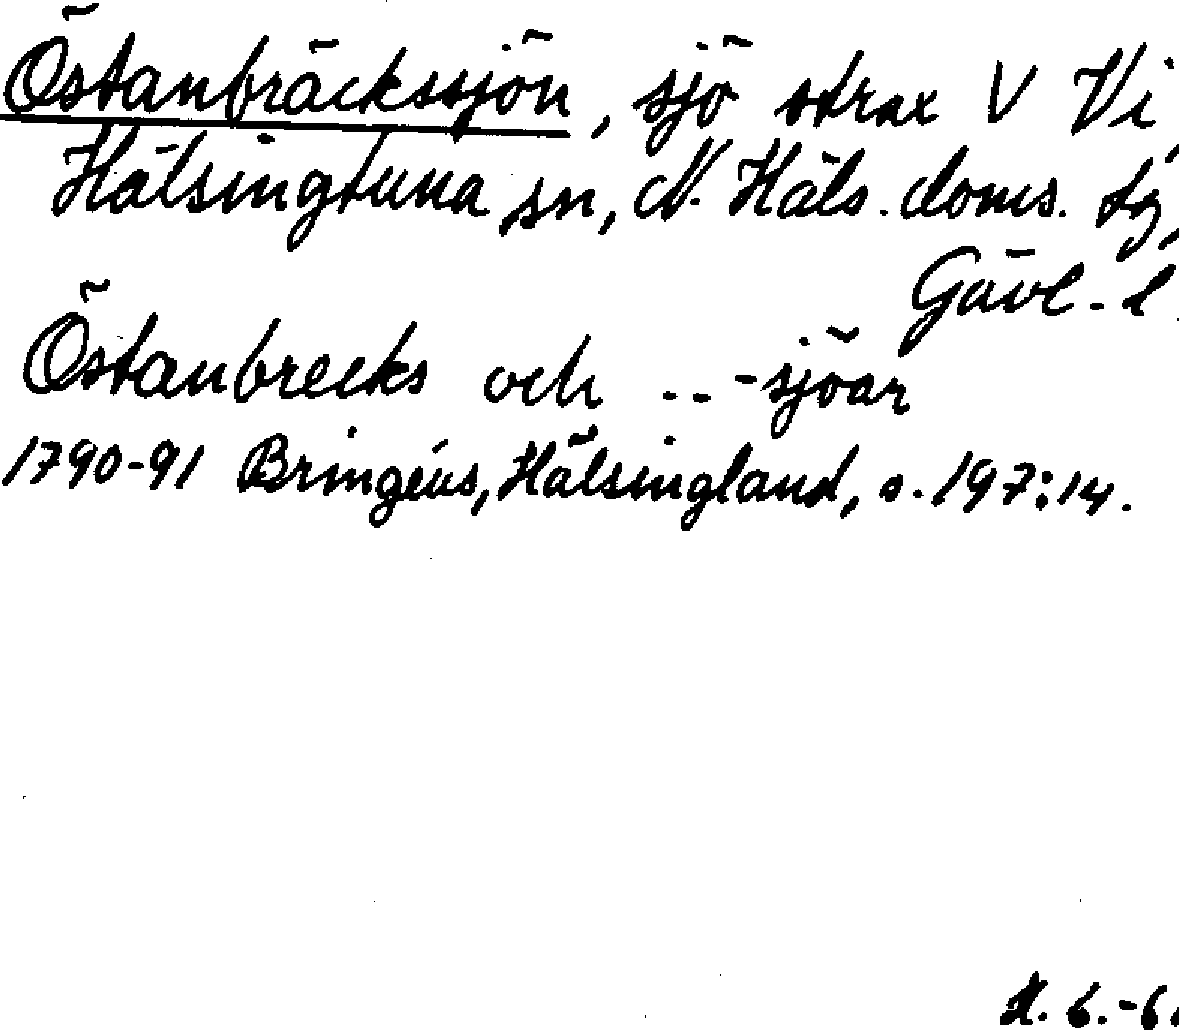 Östanbräckssjön, sjö strax V Vi,
Hälsingtuna sn, N. Häls. doms. tg,
Gävl. l
Östanbrecks och .. -sjöar
1790-91 Bringéus, Hälsingland, s. 197:14.
6.-6.